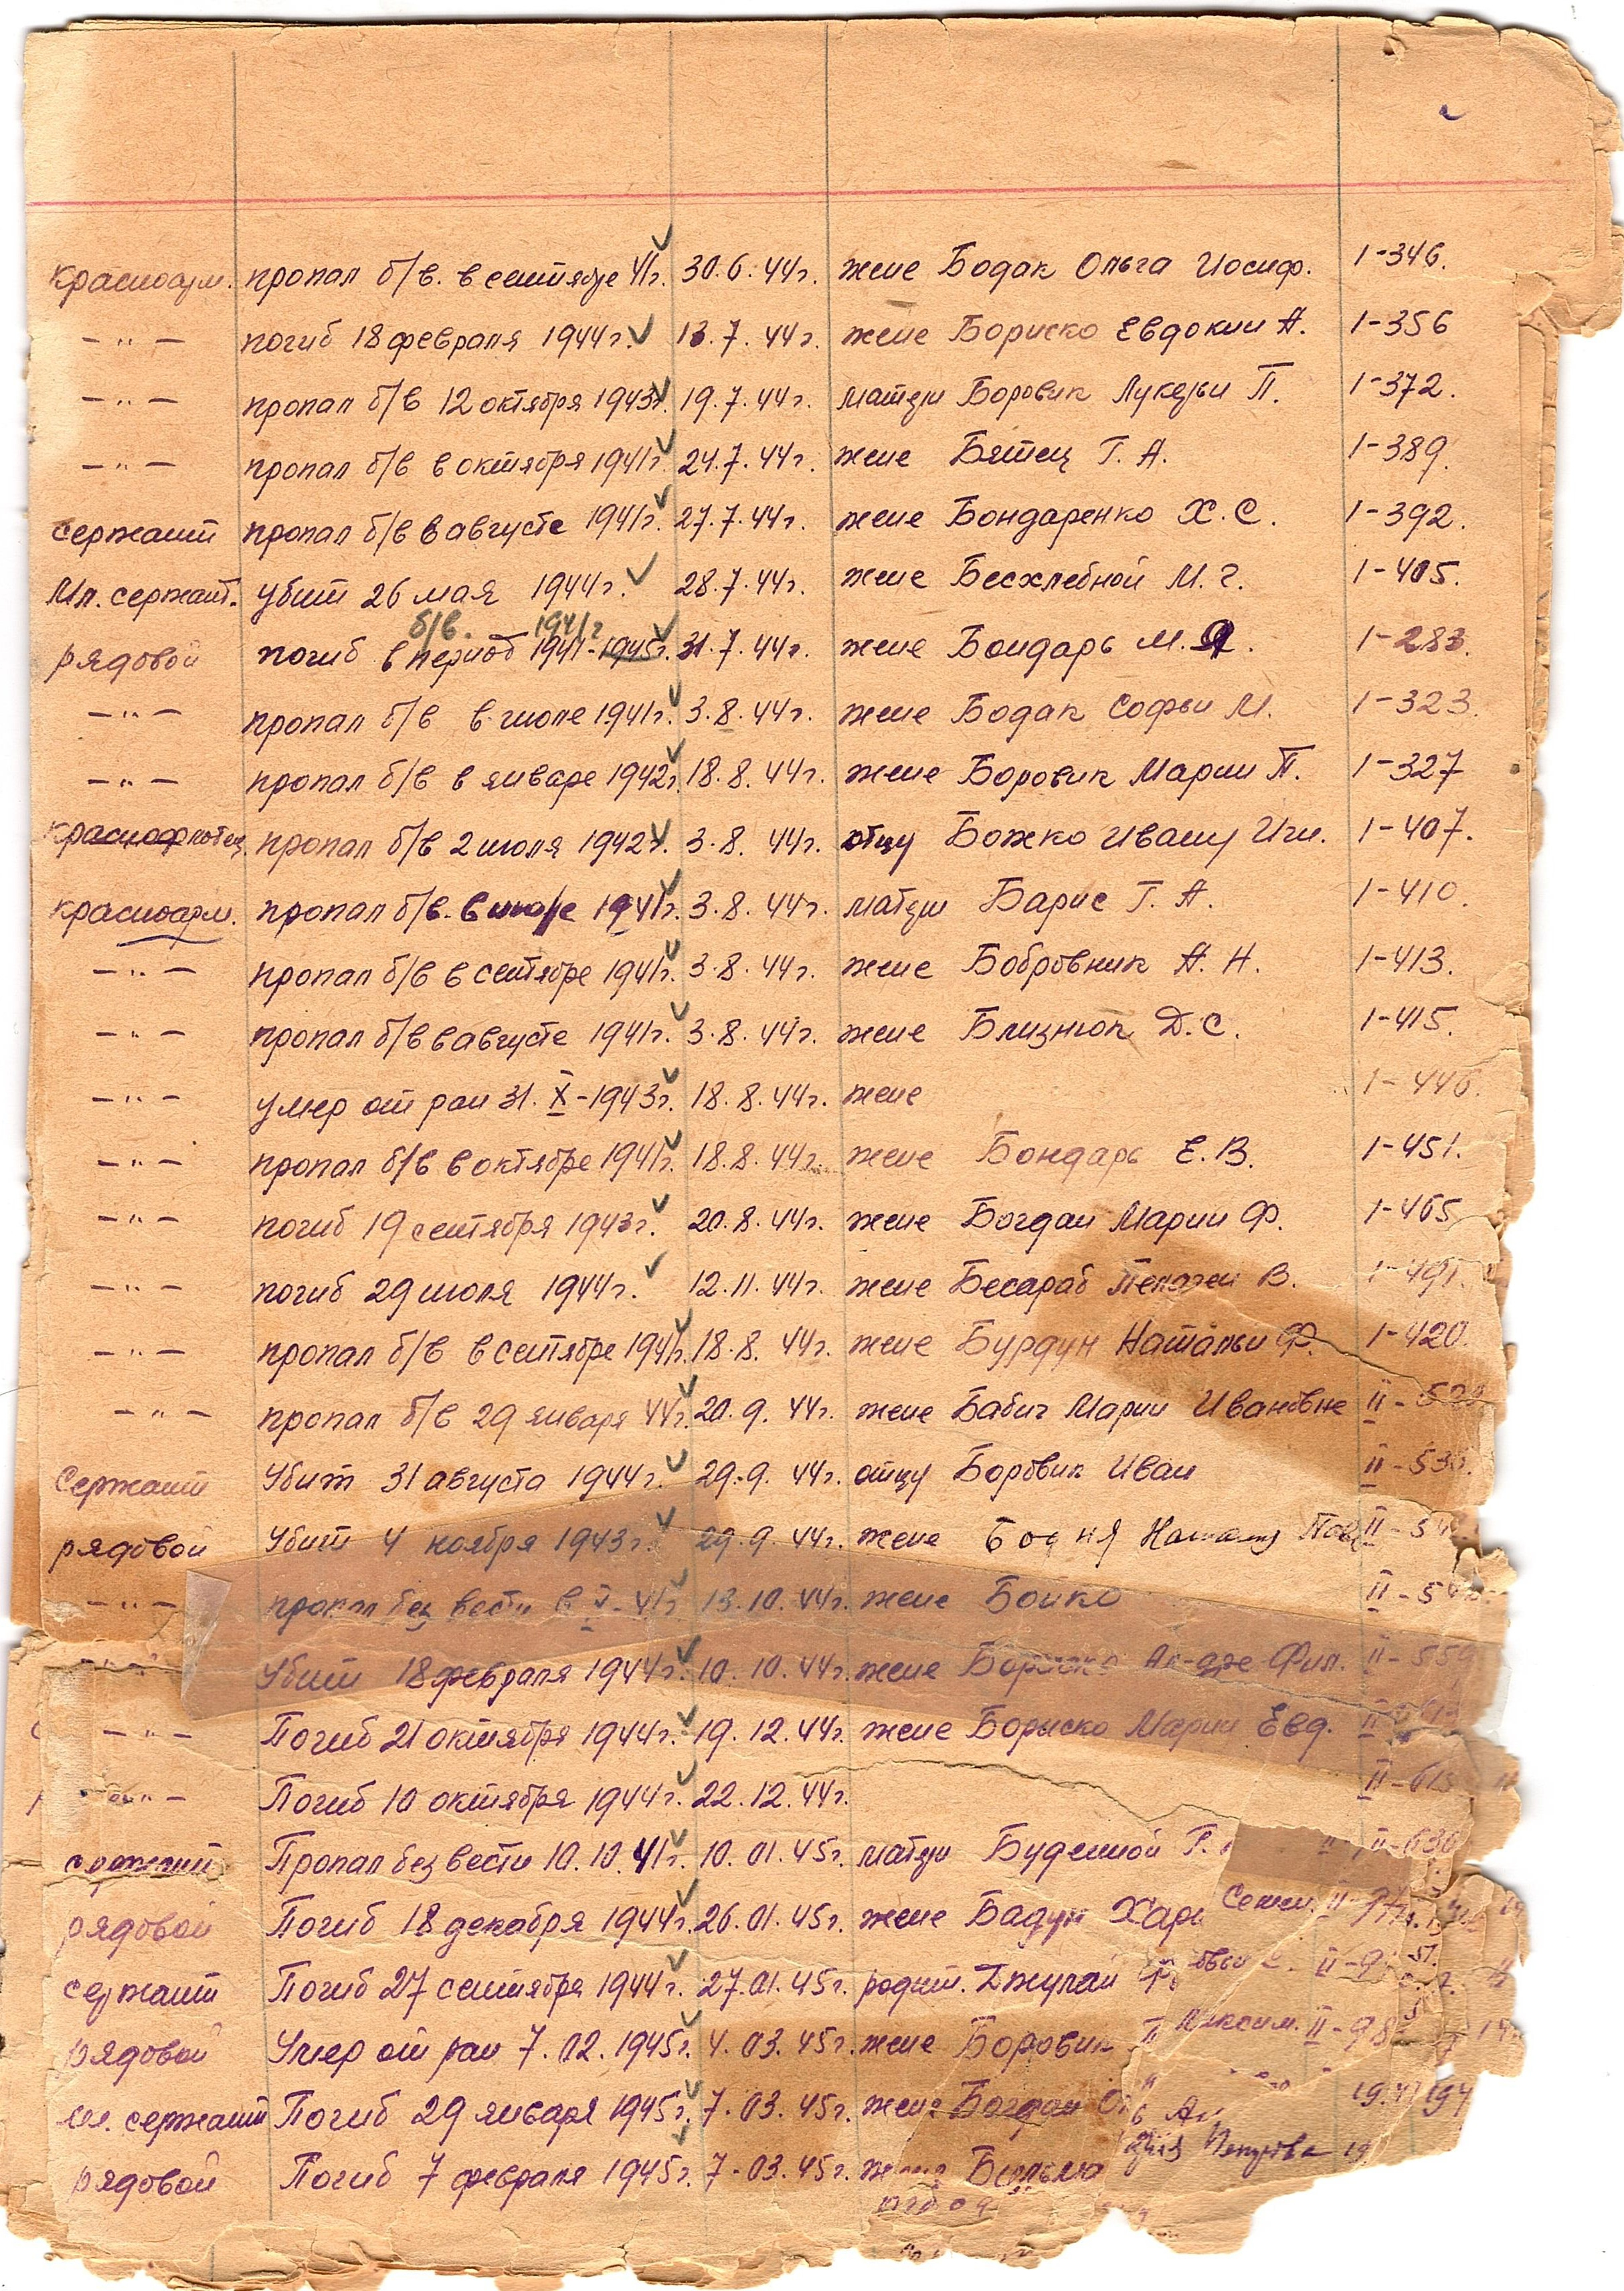 красноарм. пропал б/в. в сентябре 41г. 30.6.44г. жене Бодак Ольга Иосиф. 1-346.
—"— погиб 18 февраля 1944г. 13.7.44г. жене Бориско Евдокии А. 1-356
—"— пропал б/в 12 октября 1943г. 19.7.44г. матери Боровик Лукерьи П. 1-372.
—"— пропал б/в в октября 1941г. 24.7.44г. жене Бятец Г. А. 1-389.
сержант пропал б/в в августе 1941г. 27.7.44г. жене Бондаренко Х. С. 1-392.
Мл. сержант. убит 26 мая 1944г. 28.7.44г. жене Бесхлебной М. Г. 1-405.
б/в. 1941г
рядовой погиб в период 1941-1945г. 31.7.44г. жене Бондарь М. Я. 1-283.
—"— пропал б/в в июле 1941г. 3.8.44г. жене Бодак Софьи М. 1-323.
—"— пропал б/в в январе 1942г. 18.8.44г. жене Боровик Марии П. 1-327
краснофлотец пропал б/в 2 июля 1942г. 3.8.44г. отцу Божко Ивану Игн. 1-407.
красноарм. пропал б/в. в июле 1941г. 3.8.44г. матери Барис Г. А. 1-410.
—"— пропал б/в в сентябре 1941г. 3.8.44г. жене Бобровник А. Н. 1-413.
—"— пропал б/в в августе 1941г. 3.8.44г. жене Близнюк Д. С. 1-415.
—"— умер от ран 31.X-1943г. 18.8.44г. жене 1-446.
—"— пропал б/в в октябре 1941г. 18.8.44г. жене Бондарь Е. В. 1-451.
—"— погиб 19 сентября 1943г. 20.8.44г. жене Богдан Марии Ф. 1-465
—"— погиб 29 июля 1944г. 12.11.44г. жене Бесараб Пелагеи В. 1-491.
—"— пропал б/в в сентябре 1941г. 18.8.44г. жене Бурдун Натальи Ф. 1-420.
—"— пропал б/в 29 января 44г. 20.9.44г. жене Бабич Марии Ивановне II-522
Сержант Убит 31 августа 1944г. 29.9.44г. отцу Боровик Иван II-530.
рядовой Убит 4 ноября 1943г. 29.9.44г. жене Бодня II-54
—"— пропал без вести в V-41г 13.10.44г. жене Бойко II-54
Убит 18 февраля 1944г. 10.10.44г. жене Бориско Фил. II-559
—"— Погиб 21 октября 1944г. 19.12.44г. жене Бориско Марии Евд. II-613
—"— Погиб 10 октября 1944г. 22.12.44г. II-615
сержант Пропал без вести 10.10.41г. 10.01.45г. матери Буденной Г. II-630
рядовой Погиб 18 декабря 1944г. 26.01.45г. жене Бадун Хари Семен. II-97
сержант Погиб 27 сентября 1944г. 27.01.45г. родит. Джулай II-9
рядовой Умер от ран 7.02.1945г. 4.03.45г. жене Боровик Максим. II-98
мл. сержант Погиб 29 января 1945г. 7.03.45г. жене Богдан
рядовой Погиб 7 февраля 1945г. 7-03.45г. жене